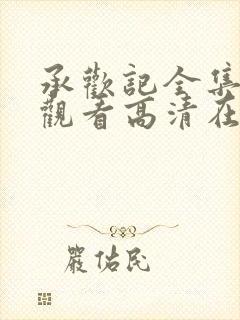 承歡記全集
觀看高清在
嚴佑民